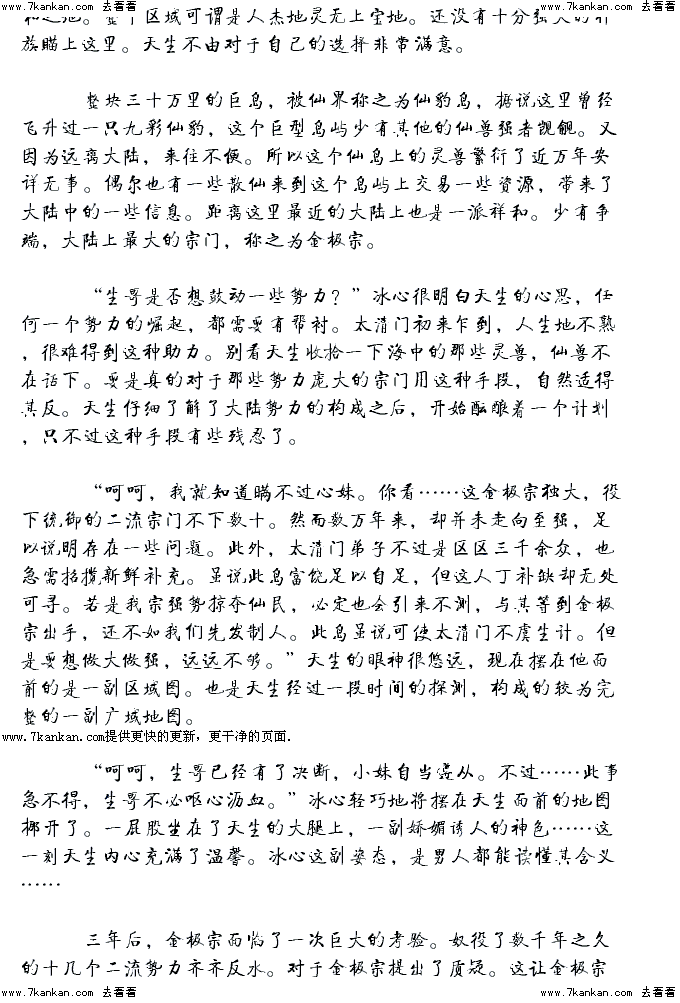 www.7kankan.com 去看看 www.7kankan.com 去看看 www.7kankan.com 去看看
区域可谓是人杰地灵无上宝地。还没有十分强大的
族瞄上这里。天生不由对于自己的选择非常满意。
整块三十万里的巨岛，被仙界称之为仙豹岛，据说这里曾经
飞升过一只九彩仙豹，这个巨型岛屿少有其他的仙兽强者觊觎。又
因为远离大陆，来往不便。所以这个仙岛上的灵兽繁衍了近万年安
详无事。偶尔也有一些散仙来到这个岛屿上交易一些资源，带来了
大陆中的一些信息。距离这里最近的大陆上也是一派祥和。少有争
端，大陆上最大的宗门，称之为金极宗。
“生哥是否想鼓动一些势力？”冰心很明白天生的心思，任
何一个势力的崛起，都需要有帮衬。太清门初来乍到，人生地不熟
，很难得到这种助力。别看天生收拾一下海中的那些灵兽，仙兽不
在话下。要是真的对于那些势力庞大的宗门用这种手段，自然适得
其反。天生仔细了解了大陆势力的构成之后，开始酝酿着一个计划
，只不过这种手段有些残忍了。
“呵呵，我就知道瞒不过心妹。你看……这金极宗独大，役
下统御的二流宗门不下数十。然而数万年来，却并未走向至强，足
以说明存在一些问题。此外，太清门弟子不过是区区三千余众，也
急需招揽新鲜补充。虽说此岛富饶足以自足，但这人丁补缺却无处
可寻。若是我宗强势掠夺仙民，必定也会引来不测，与其等到金极
宗出手，还不如我们先发制人。此岛虽说可使太清门不虞生计。但
是要想做大做强，远远不够。”天生的眼神很悠远，现在摆在他面
前的是一副区域图。也是天生经过一段时间的探测，构成的较为完
整的一副广域地图。
www.7kankan.com提供更快的更新，更干净的页面.
“呵呵，生哥已经有了决断，小妹自当遵从。不过……此事
急不得，生哥不必呕心沥血。”冰心轻巧地将摆在天生面前的地图
挪开了。一屁股坐在了天生的大腿上，一副娇媚诱人的神色……这
一刻天生内心充满了温馨。冰心这副姿态，是男人都能读懂其含义
……
三年后，金极宗面临了一次巨大的考验。奴役了数千年之久
的十几个二流势力齐齐反水。对于金极宗提出了质疑。这让金极宗
www.7kankan.com 去看看 www.7kankan.com 去看看 www.7kankan.com 去看看